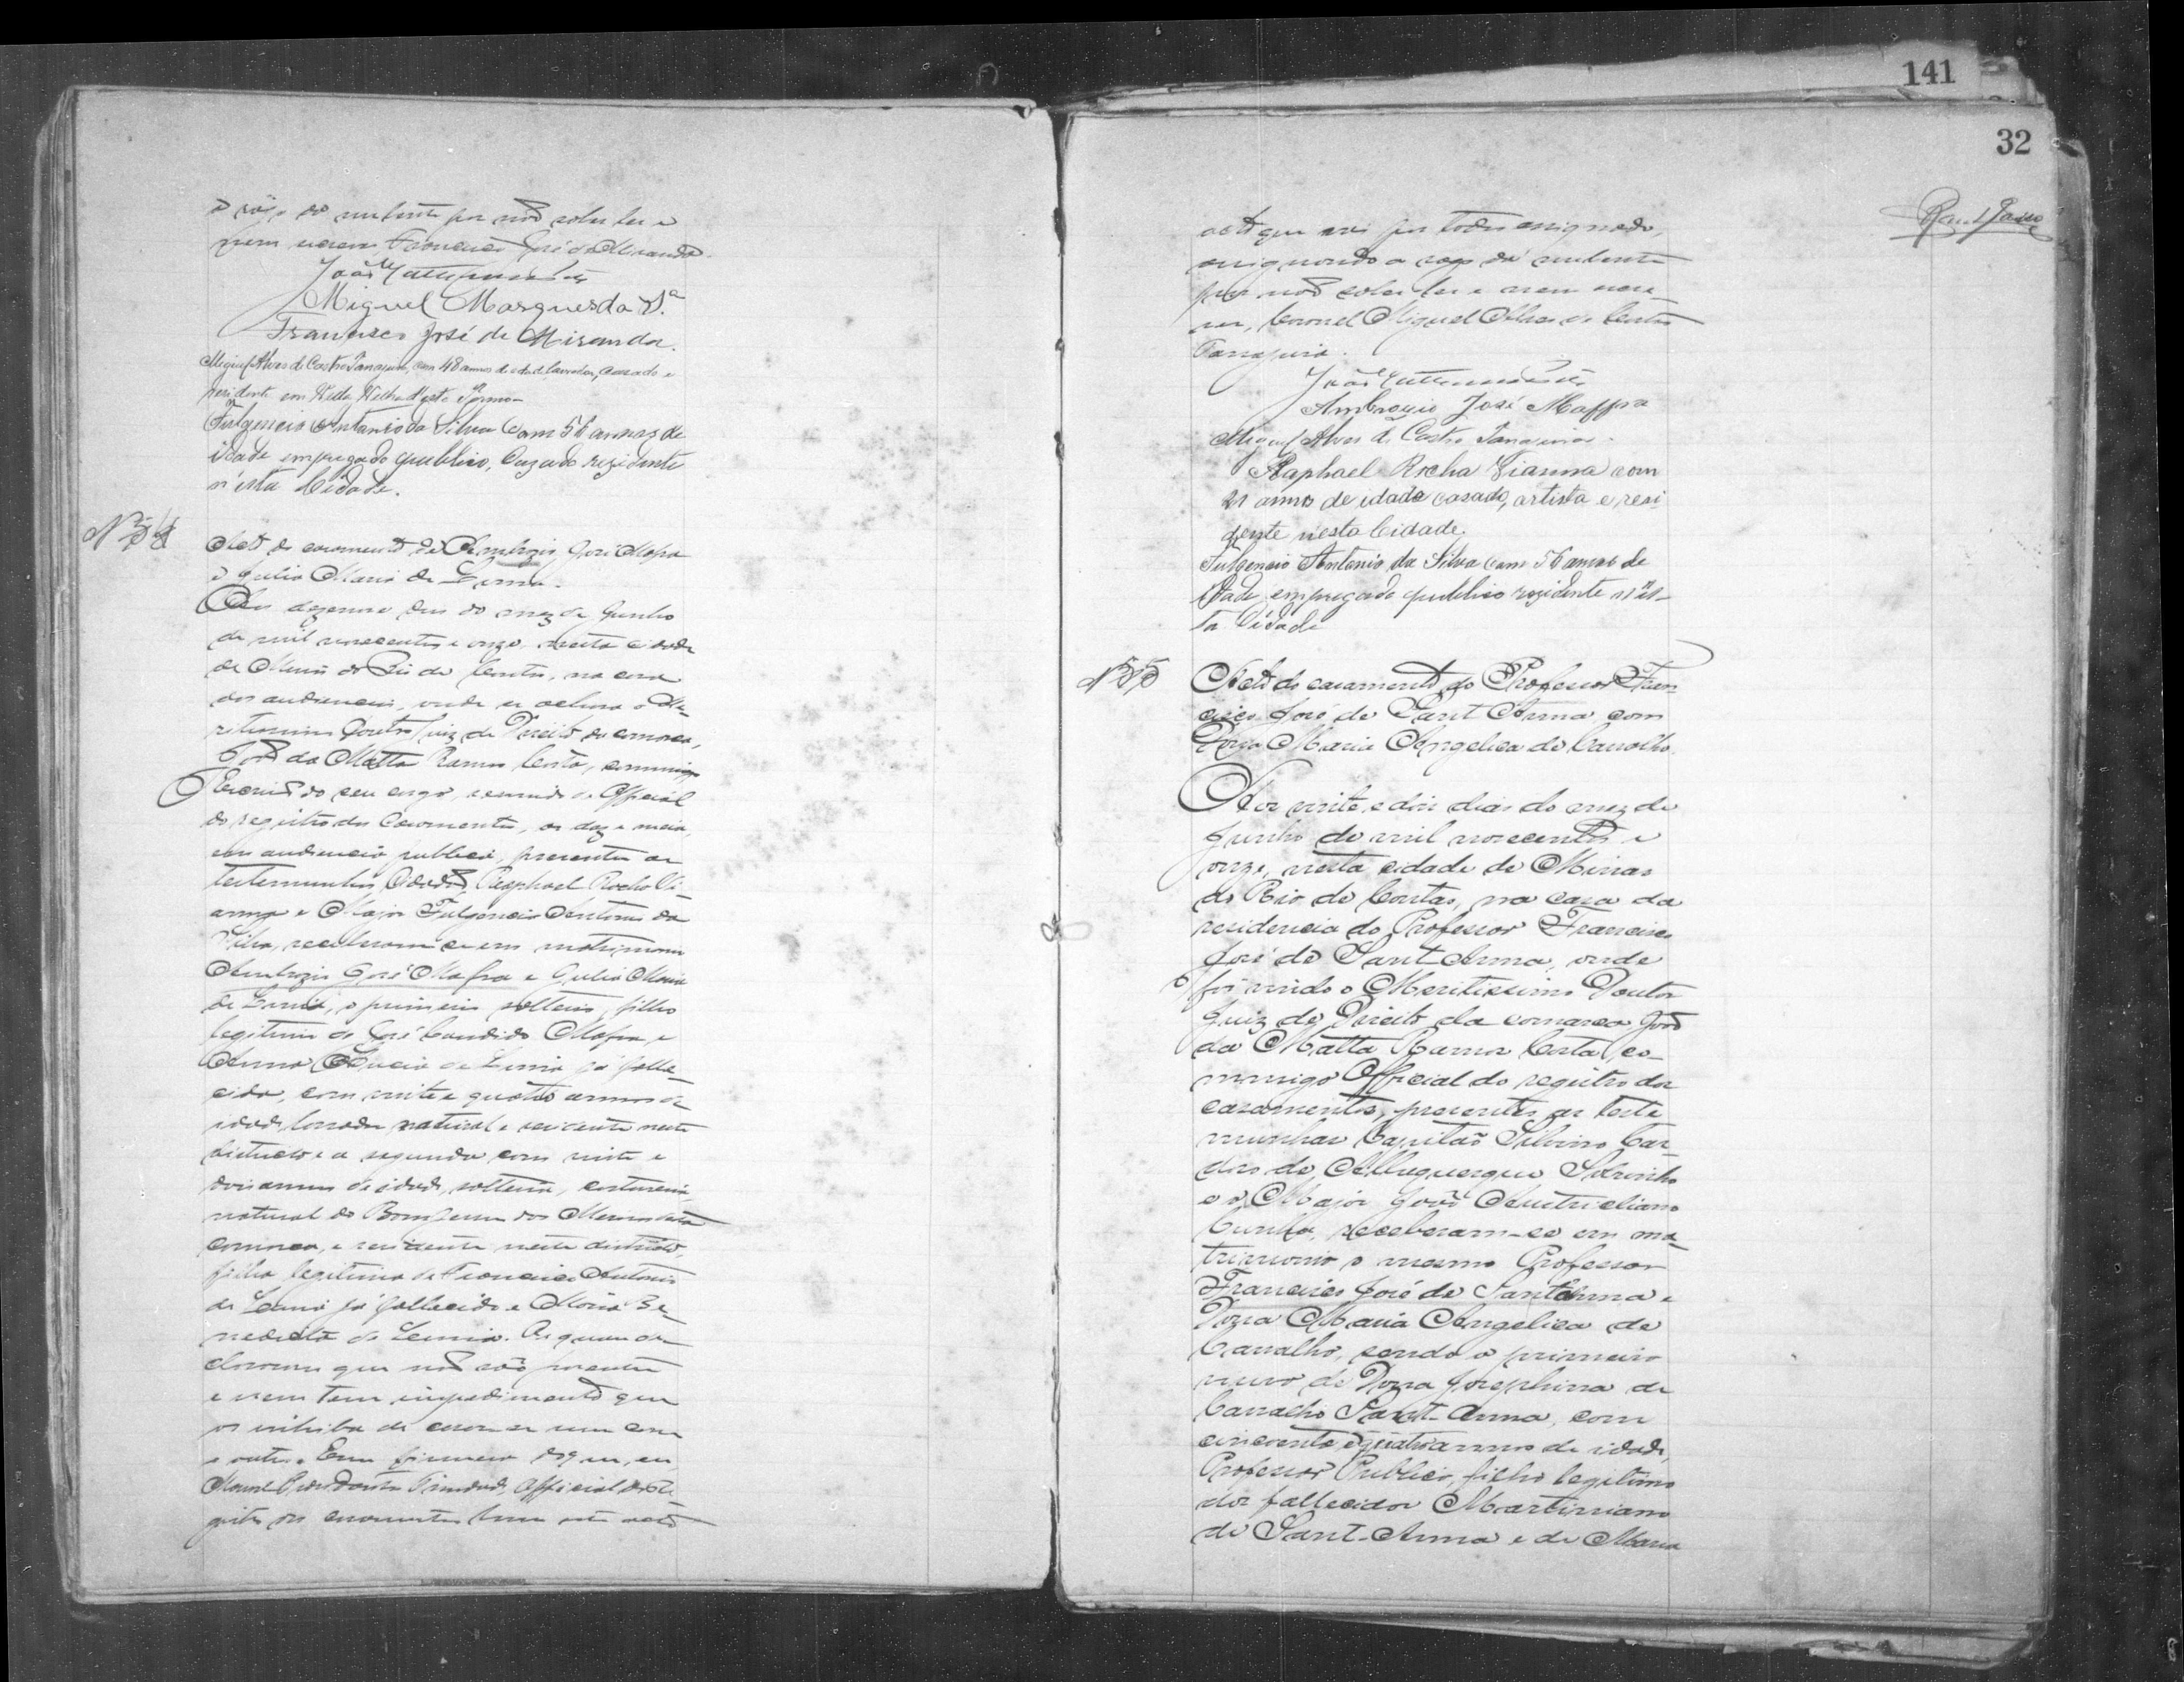 a rôgo da nubente por não saber ler e
nem escrever Francisco José de Miranda.
João
Miguel Marques da Sª
Francisco José de Miranda.
Miguel Alves de Castro Tanajura, com 48 annos de edade, lavrador, casado e
residente em Villa Velha d'esta
Fulgencio Antonio da Silva Com 56 annos de
idade empregado publico, Cazado rezidente
n'esta Cidade.
Nº 54
Acto do casamento de Ambrozio José Mafra
e Julia Maria de
Aos dezenove dias do mez de Junho
de mil novecentos e onze, nesta cidade
de Minas do Rio de Contas, na casa
das audiencias, onde se achava o Me-
retissimo Doutor Juiz de Direito da comarca,
João da Matta Ramos Costa, commigo
Escrivão do seu cargo, servindo de Official
do registro dos Casamentos, as doze e meia,
em audiencia publica, presentes as
testemunhas Cidadão Raphael Rocha Vi-
anna e Major Fulgencio Antonio da
Silva, receberam-se em matrimonio
Ambrozio José Mafra e Julia Maria
de , o primeiro solteiro, filho
legitimo de José Candido Mafra e
Anna de já falle-
cida, com vinte e quatro annos de
idade, lavrador, natural e residente neste
districto e a segunda com vinte e
dois annos de idade, solteira, costureira
natural do Bom Jesus dos Meiras desta
comarca, e residente neste districto,
filha legitima de Francisco Antonio
de já fallecido e Maria Be-
nedicta de . Os quaes de-
clararam que não são parentes
e nem tem impedimento que
os inhiba de casar-se um com
o outro. Em firmeza do que, eu
Trindade, Official do Re-
gistro dos casamentos lavrei este acto
141
32
acto que vai por todos assignado,
assignando a rogo da nubente
por não saber ler e nem escre-
ver, Coronel Miguel Alves de Castro
Tanajura.
João
Ambrozio José Maffra
Miguel Alves de Castro Tanajura.
Raphael Rocha Vianna com
21 annos de idade casado, artista e resi-
dente nesta Cidade.
Fulgencio Antonio da Silva Com 56 annos de
idade, empregado publico rezidente n'es-
ta Cidade
Nº 55
Acto do casamento do Professor Fran
cisco José de Sant Anna com
Dona Maria Angelica de Carvalho.
Aos vinte e dois dias do mez de
Junho de mil novecentos e
onze, nesta cidade de Minas
do Rio de Contas, na casa da
residencia do Professor Francisco
José de Sant Anna, onde
foi vindo o Meritissimo Doutor
Juiz de Direito da comarca João
da Matta Ramos Costa, co-
mmigo Official do registro dos
casamentos, presentes as teste
munhas Capitão Silvino Car-
doso de Albuquerque Sobrinho
e o Major João Austricliano
Cunha, receberam-se em ma-
trimonio o mesmo Professor
Francisco José de Sant Anna e
Dona Maria Angelica de
Carvalho, sendo o primeiro
viuvo de Dona Josephina de
Carvalho Sant-Anna, com
cincoenta e quatro annos de idade,
Professor Publico, filho legitimo
dos fallecidos Martiniano
de Sant-Anna e de Maria